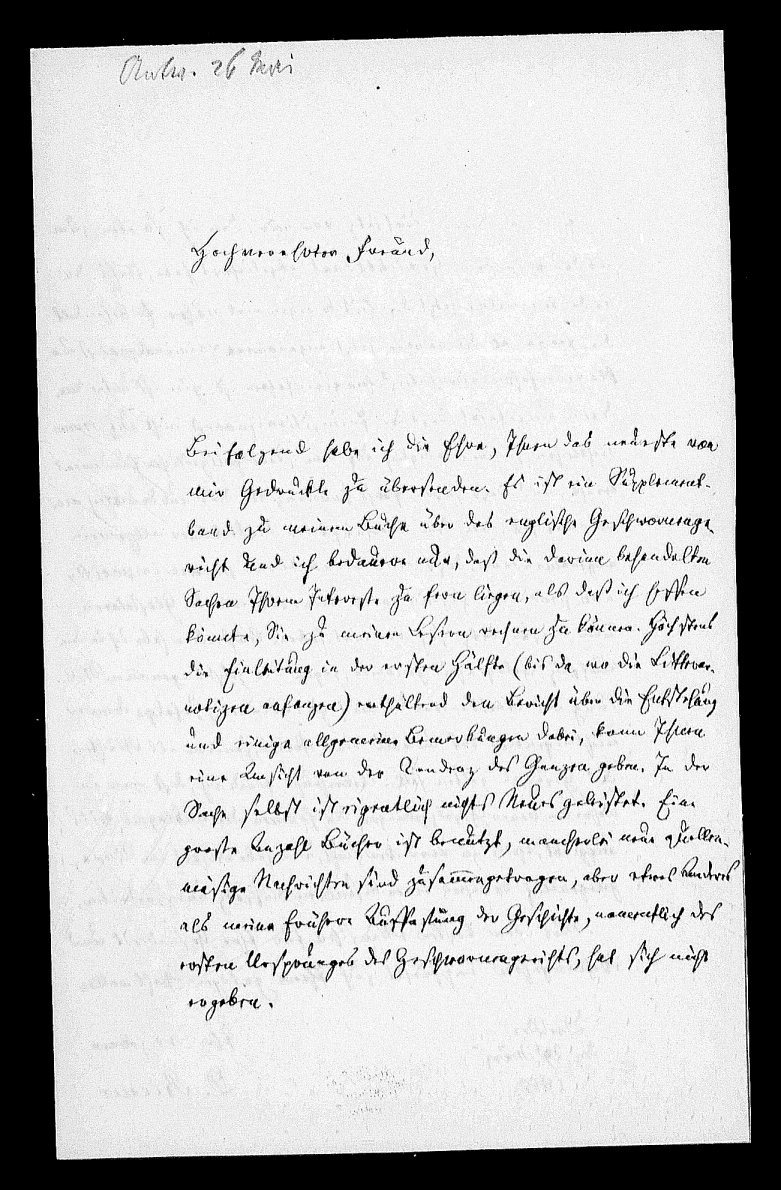 Antw. 26 Mai
Hochverehrter Freund,
Beifolgend habe ich die Ehre, Ihnen das neueste von
mir Gedruckte zu übersenden. Es ist ein Supplement-
band zu meinem Buche über das englische Geschwornenge-
richt und ich bedauere nur, daß die darinn behandelten
Sachen Ihrem Interesse zu fern liegen, als daß ich hoffen
könnte, Sie zu meinen Lesern rechnen zu können. Höchstens
die Einleitung in der ersten Hälfte (bis da, wo die Litterar-
notizen anfangen) enthaltend den Bericht über die Entstehung
und einige allgemeine Bemerkungen dabei, kann Ihnen
eine Ansicht von der Tendenz des Ganzen geben. In der
Sache selbst ist eigentlich nichts Neues geleistet. Eine
große Anzahl Bücher ist benutzt, mancherlei neue quellen-
mäsige Nachrichten sind zusammengetragen, aber etwas Anderes
als meine frühere Auffassung der Geschichte, namentlich des
ersten Ursprunges des Geschwornengerichts, hat sich nicht
ergeben.